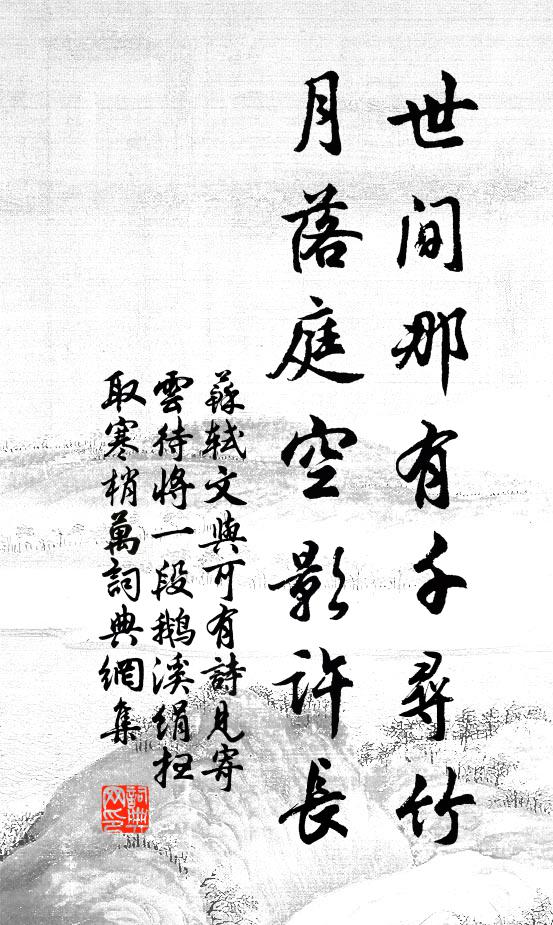 世間那有千尋竹
月落庭空影許長
蘇軾文與可有詩見寄
雲待將一段鵝溪絹掃
取寒梢萬詞典網集